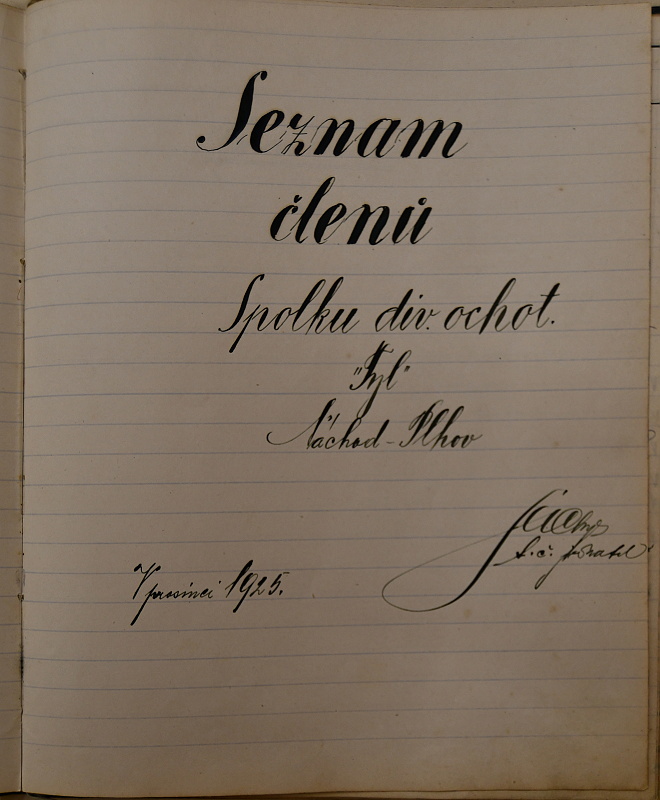 Seznam
členů
Spolku div. ochot.
"Tyl"
Náchod-Plhov
t.č. jednatel
V prosinci 1925.